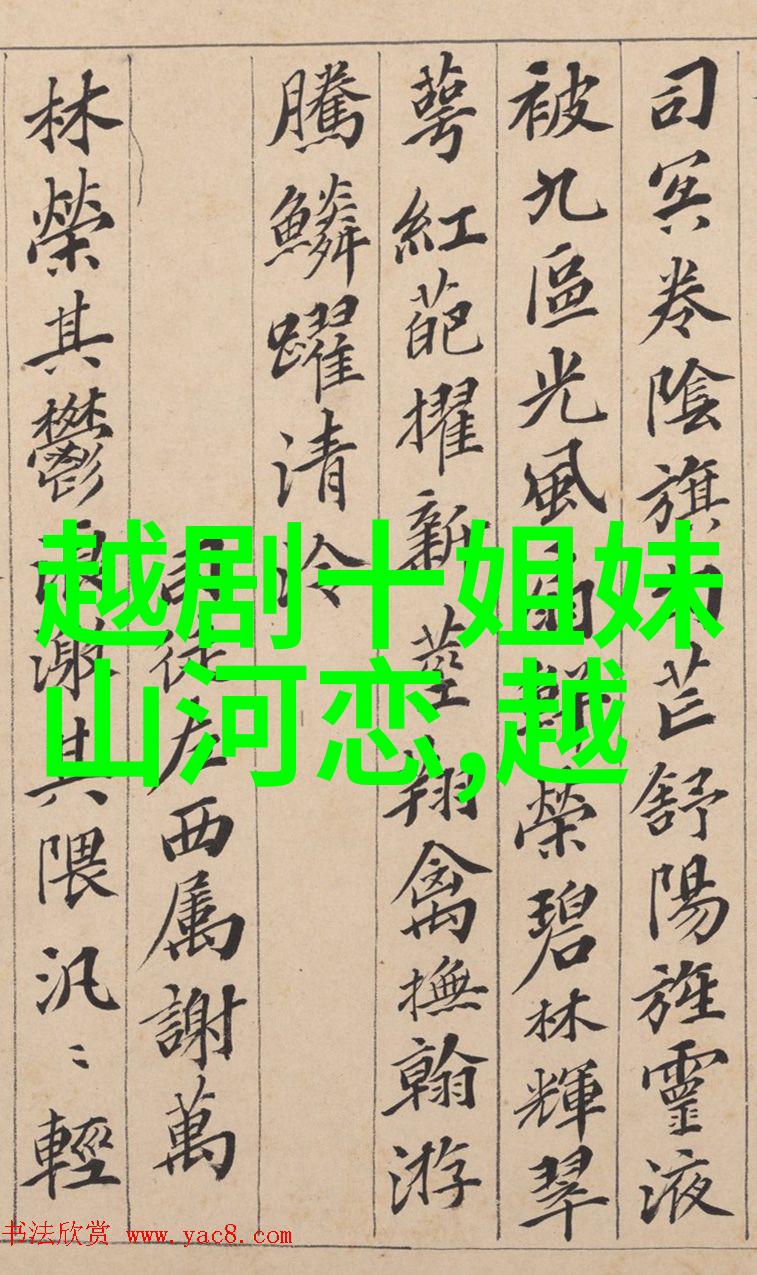 司冥卷陰旗句芒舒陽旌靈液
被九區光風扇鮮榮碧林輝翠
萼紅葩擢新莖翔禽撫翰游
騰鱗躍清泠
司徒左西属謝萬
林榮其鬱浪激其隈汎〻輕
越剧十姐妹
山河恋,越
书法欣赏 www.yac8.com